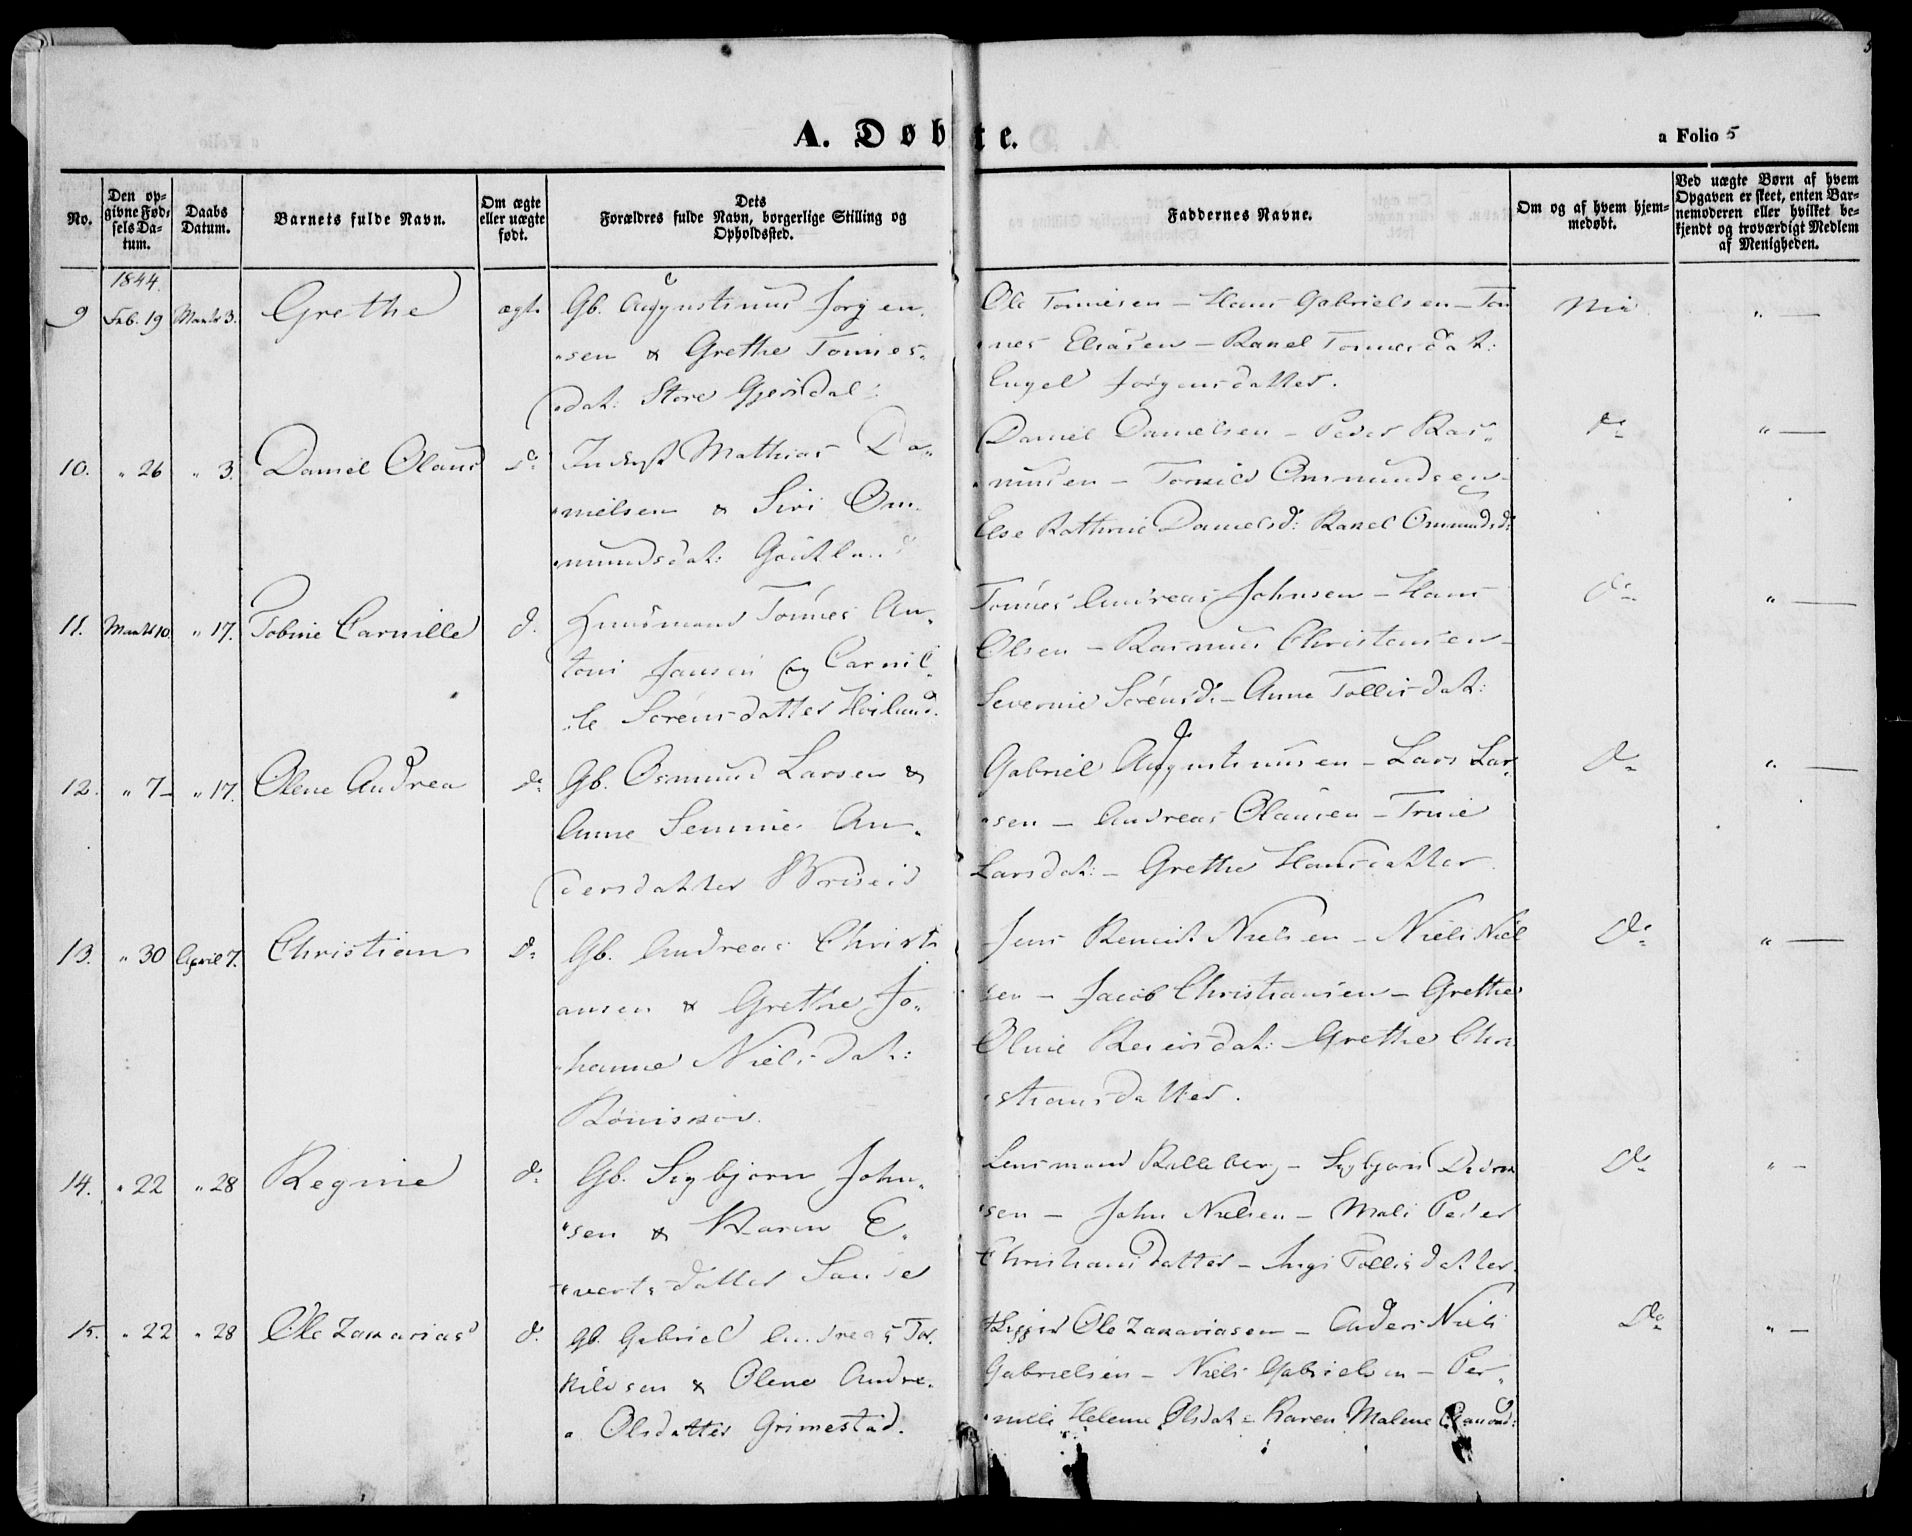 A. Døbte.
a Folio 5
No.
Den op-
givne Fød-
sels Da-
tum.
Daabs
Datum.
Barnets fulde Navn.
Om ægte
eller uægte
født.
Dets
Forældres fulde Navn, borgerlige Stilling og
Opholdssted.
Faddernes Navne.
Om og af hvem hjem-
medøbt.
Ved uægte Børn af hvem
Opgaven er skeet, enten Bar-
nemoderen eller hvilket be-
kjendt og troværdigt Medlem
af Menigheden.
1844.
9 Feb. 19 Marts 3. Grethe ægte Gb. Augustinus Jørgen
sen & Grethe Tonnes
dat: Store
Ole Tonnesen - Hans Gabrielsen - Ton
nes Eliasen - Rakel Tonnesdat:
Engel Jørgensdatter.
" —
10. " 26 " 3. Daniel Olaus do Mathias Da
nielsen & Siri Om
mundsdat:
Daniel Danielsen - Peder Ras
musen - Ommundsen -
Else Kathrine Danielsd: Rakel Ommundsd:
do " —
11. Marts 10. " 17. Tobine Carnille d. Huusmand Tønnes An
toni Jansen og Carnil
le Sørensdatter Høiland.
Tønnes Andreas Johnsen - Hans
Olsen - Rasmus Christensen -
Severine Sørensd: - Anne Tollisdat:
do " —
12. " 7 - " 17. Olene Andrea do Gb. Osmund Larsen &
Anne An
dersdatter
Gabriel Augustinusen - Lars Lar
sen - Andreas Olausen - Trine
Larsdat: - Grethe Hansdatter.
do " —
13. " 30 April 7. Christian do Gb. Andreas Christi
ansen & Grethe Jo
hanne Nielsdat:
Jens Nielsen - Niels Niel
sen - Jacob Christiansen - Grethe
Oline dat: - Grethe Chri
stiansdatter.
do " —
14. " 22 " 28 Regine do Gb. Sigbjørn John
sen & Karen E
vertsdatter
Lensmand Kalleberg - Sigbjørn
sen - John Nielsen - Mali Peder
Christiansdatter - Tollisdatter.
do " -
15. " 22 " 28 Ole Zakarias do Gb. Gabriel Andreas Tor
kildsen & Olene Andre
a Olsdatter Grimestad.
Ole Zakariasen - Anders Niels
Gabrielsen - Niels Gabrielsen - Per
nille Helene Olsdat: Karen Malene
do " -